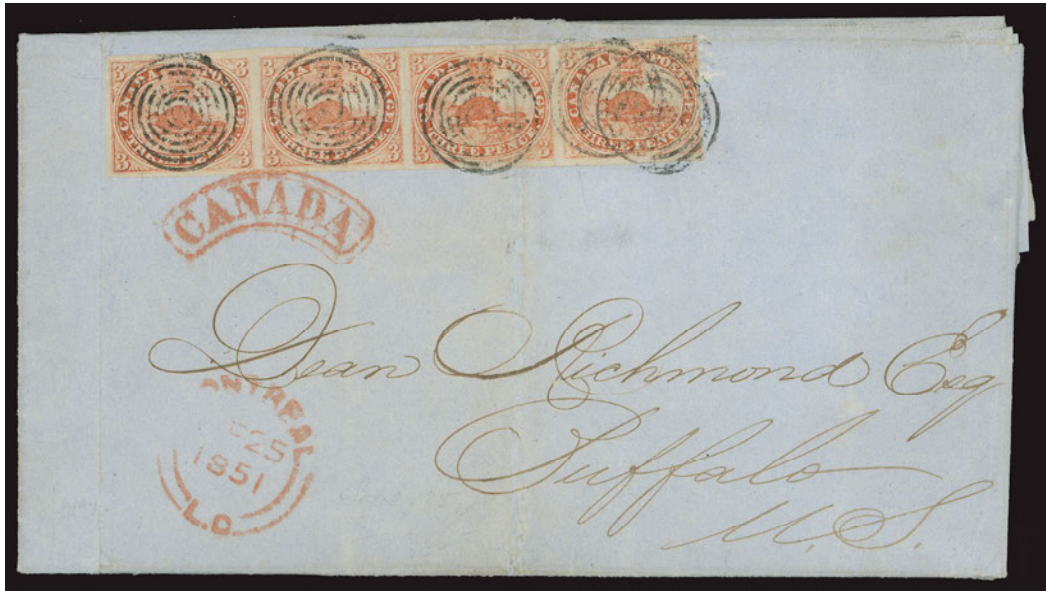 3 CANADA POSTAGE 3
3 THREE PENCE 3
3 CANADA POSTAGE 3
3 THREE PENCE 3
3 CANADA POSTAGE 3
3 THREE PENCE 3
3 CANADA POSTAGE
3 THREE PENCE
CANADA
Dean Richmond Esq
Buffalo
U.S.
ONTREAL
25
1851
L.C.